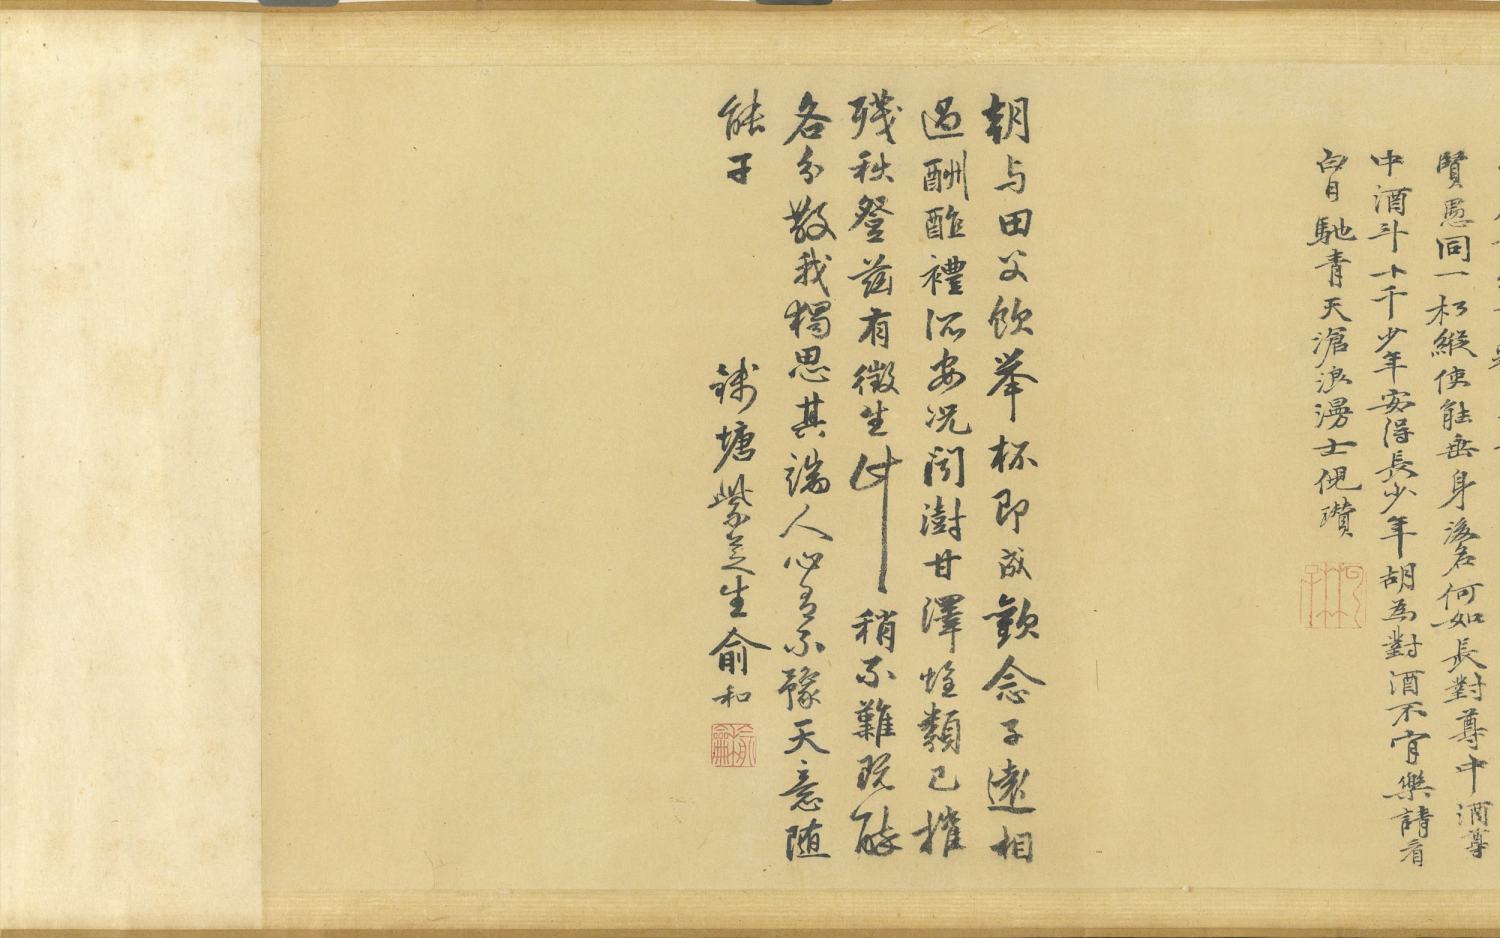 賢愚同一朽縱使能垂身後名何如長對尊中酒尊
中酒斗十千少年安得長少年胡為對酒不肯樂請看
白日馳青天滄浪漫士倪瓚
朝与田父飲举杯即成歡念子遠相
過酬酢禮所安况聞澍甘澤蝗類已摧
殘秋登茲有徵生計稍不難既醉
各分散我獨思其端人心有不豫天意随
能干
錢塘紫芝生俞和
俞和